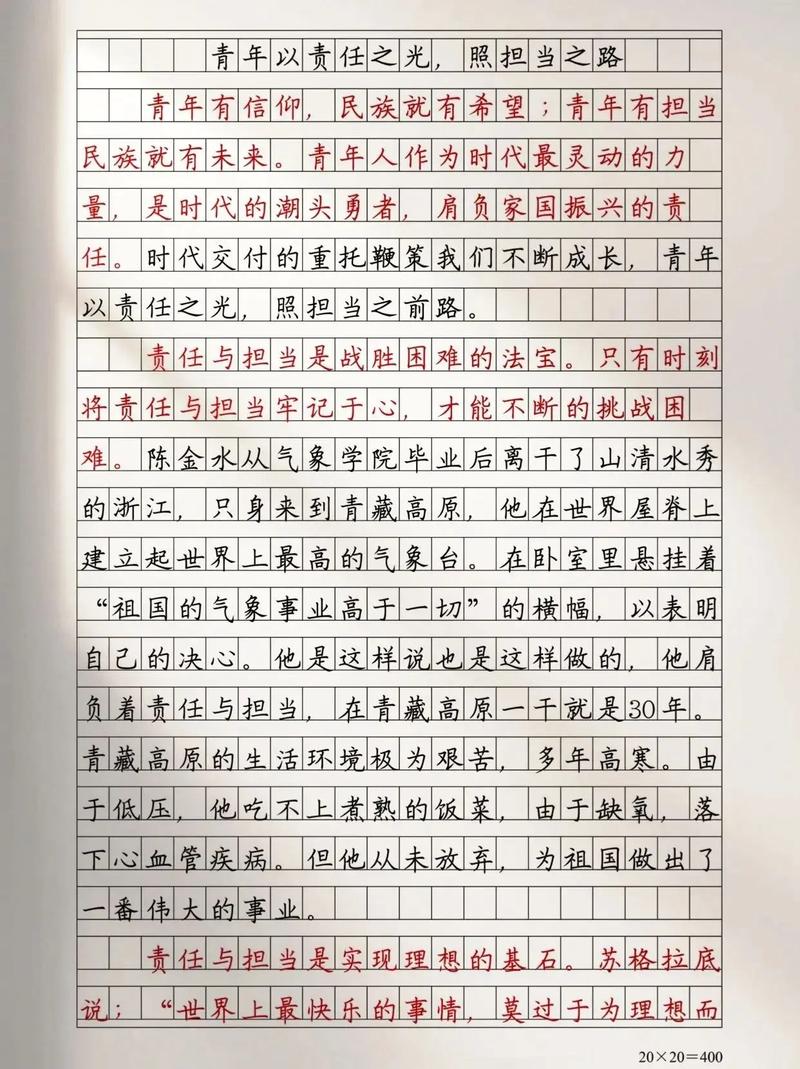 青年以责任之光，照担当之路
青年有信仰，民族就有希望；青年有担当
民族就有未来。青年人作为时代最灵动的力
量，是时代的潮头勇者，肩负家国振兴的责
任。时代交付的重托鞭策我们不断成长，青年
以责任之光，照担当之前路。
责任与担当是战胜困难的法宝。只有时刻
将责任与担当牢记于心，才能不断的挑战困
难。陈金水从气象学院毕业后离干了山清水秀
的浙江，只身来到青藏高原，他在世界屋脊上
建立起世界上最高的气象台。在卧室里悬挂着
“祖国的气象事业高于一切”的横幅，以表明
自己的决心。他是这样说也是这样做的，他肩
负着责任与担当，在青藏高原一干就是30年。
青藏高原的生活环境极为艰苦，多年高寒。由
于低压，他吃不上煮熟的饭菜，由于缺氧，落
下心血管疾病。但他从未放弃，为祖国做出了
一番伟大的事业。
责任与担当是实现理想的基石。苏格拉底
说；“世界上最快乐的事情，莫过于为理想而
20×20＝400